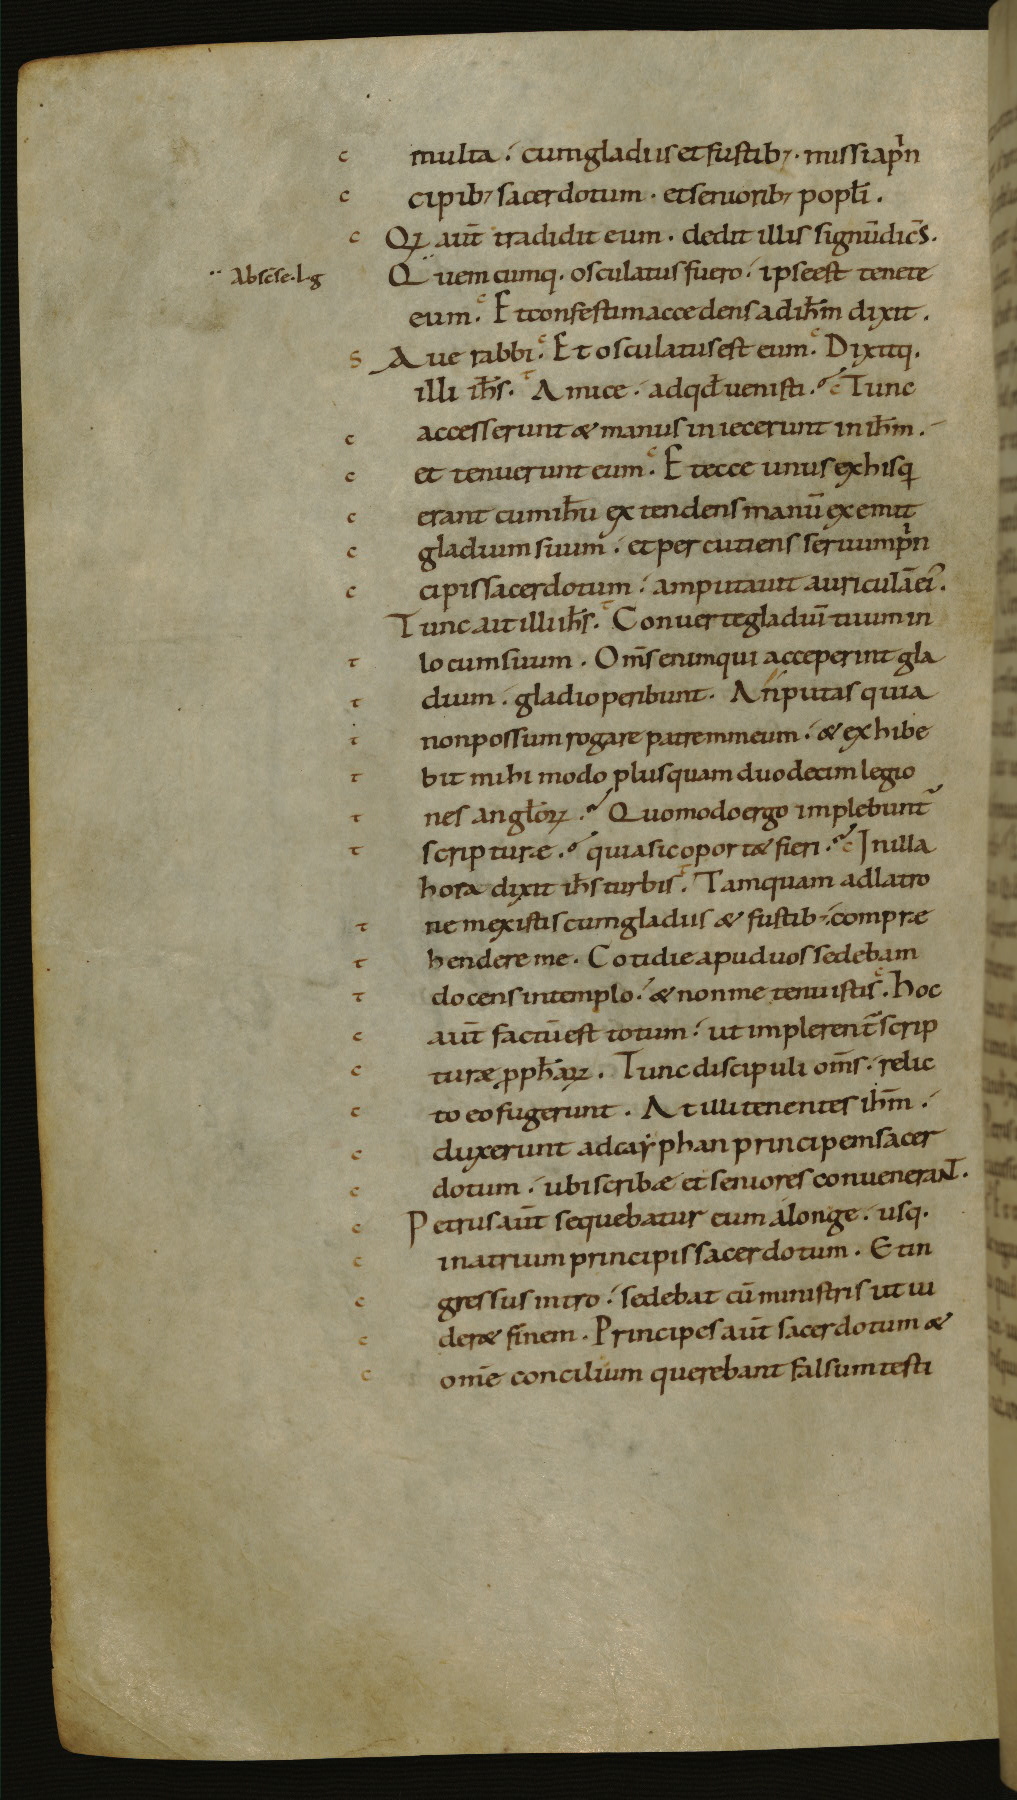 c multa . cum gladiis et fustib; . missi a prin
c cipib; sacerdotum . et seniorib; popłi .
c Qꝝ aut̄ tradidit eum . dedit illis signū dicēs .
Abscēse . lg Quemcumq . osculatus fuero . ipse est tenete
eum . c Et confestim accedens ad ih̄m dixit .
S Aue rabbi . c Et osculatus est eum . c Dixitq .
illi ih̄s . t Amice . ad qd̄ uenisti . c Tunc
c accesserunt & manus iniecerunt in ih̄m .
c et tenuerunt eum . c Et ecce unus ex his q
c erant cum ih̄u extendens manū exemit
c gladium suum . et percutiens seruum prin
c cipis sacerdotum . amputauit auriculā ei' .
Tunc ait illi ih̄s . t Conuerte gladiū tuum in
t locum suum . Om̄s enim qui acceperint gla
t dium . gladio peribunt . An putas quia
t non possum rogare patrem meum . & exhibe
t bit mihi modo plus quam duodecim legio
t nes angloꝝ . Quomodo ergo implebunt~
t scripturae . quia sic oport& fieri . c In illa
hora dixit ih̄s turbis . t Tamquam ad latro
t nem existis cum gladiis & fustib; . comprae
t hendere me . Cotidie apud uos sedebam
t docens in templo . & non me tenuistis . c hoc
c aut̄ factū est totum . ut implerent~ scrip
c turae pph̄aꝝ . Tunc discipuli om̄s . relic
c to eo fugerunt . At illi tenentes ih̄m .
c duxerunt ad cayphan principem sacer
c dotum . ubi scribae et seniores conuenerant .
c Petrus aut̄ sequebatur eum a longe . usq .
c in atrium principis sacerdotum . Et in
c gressus intro . sedebat cū ministris ut ui
c der& finem . Principes aut̄ sacerdotum &
c om̄e concilium querebant falsum testi